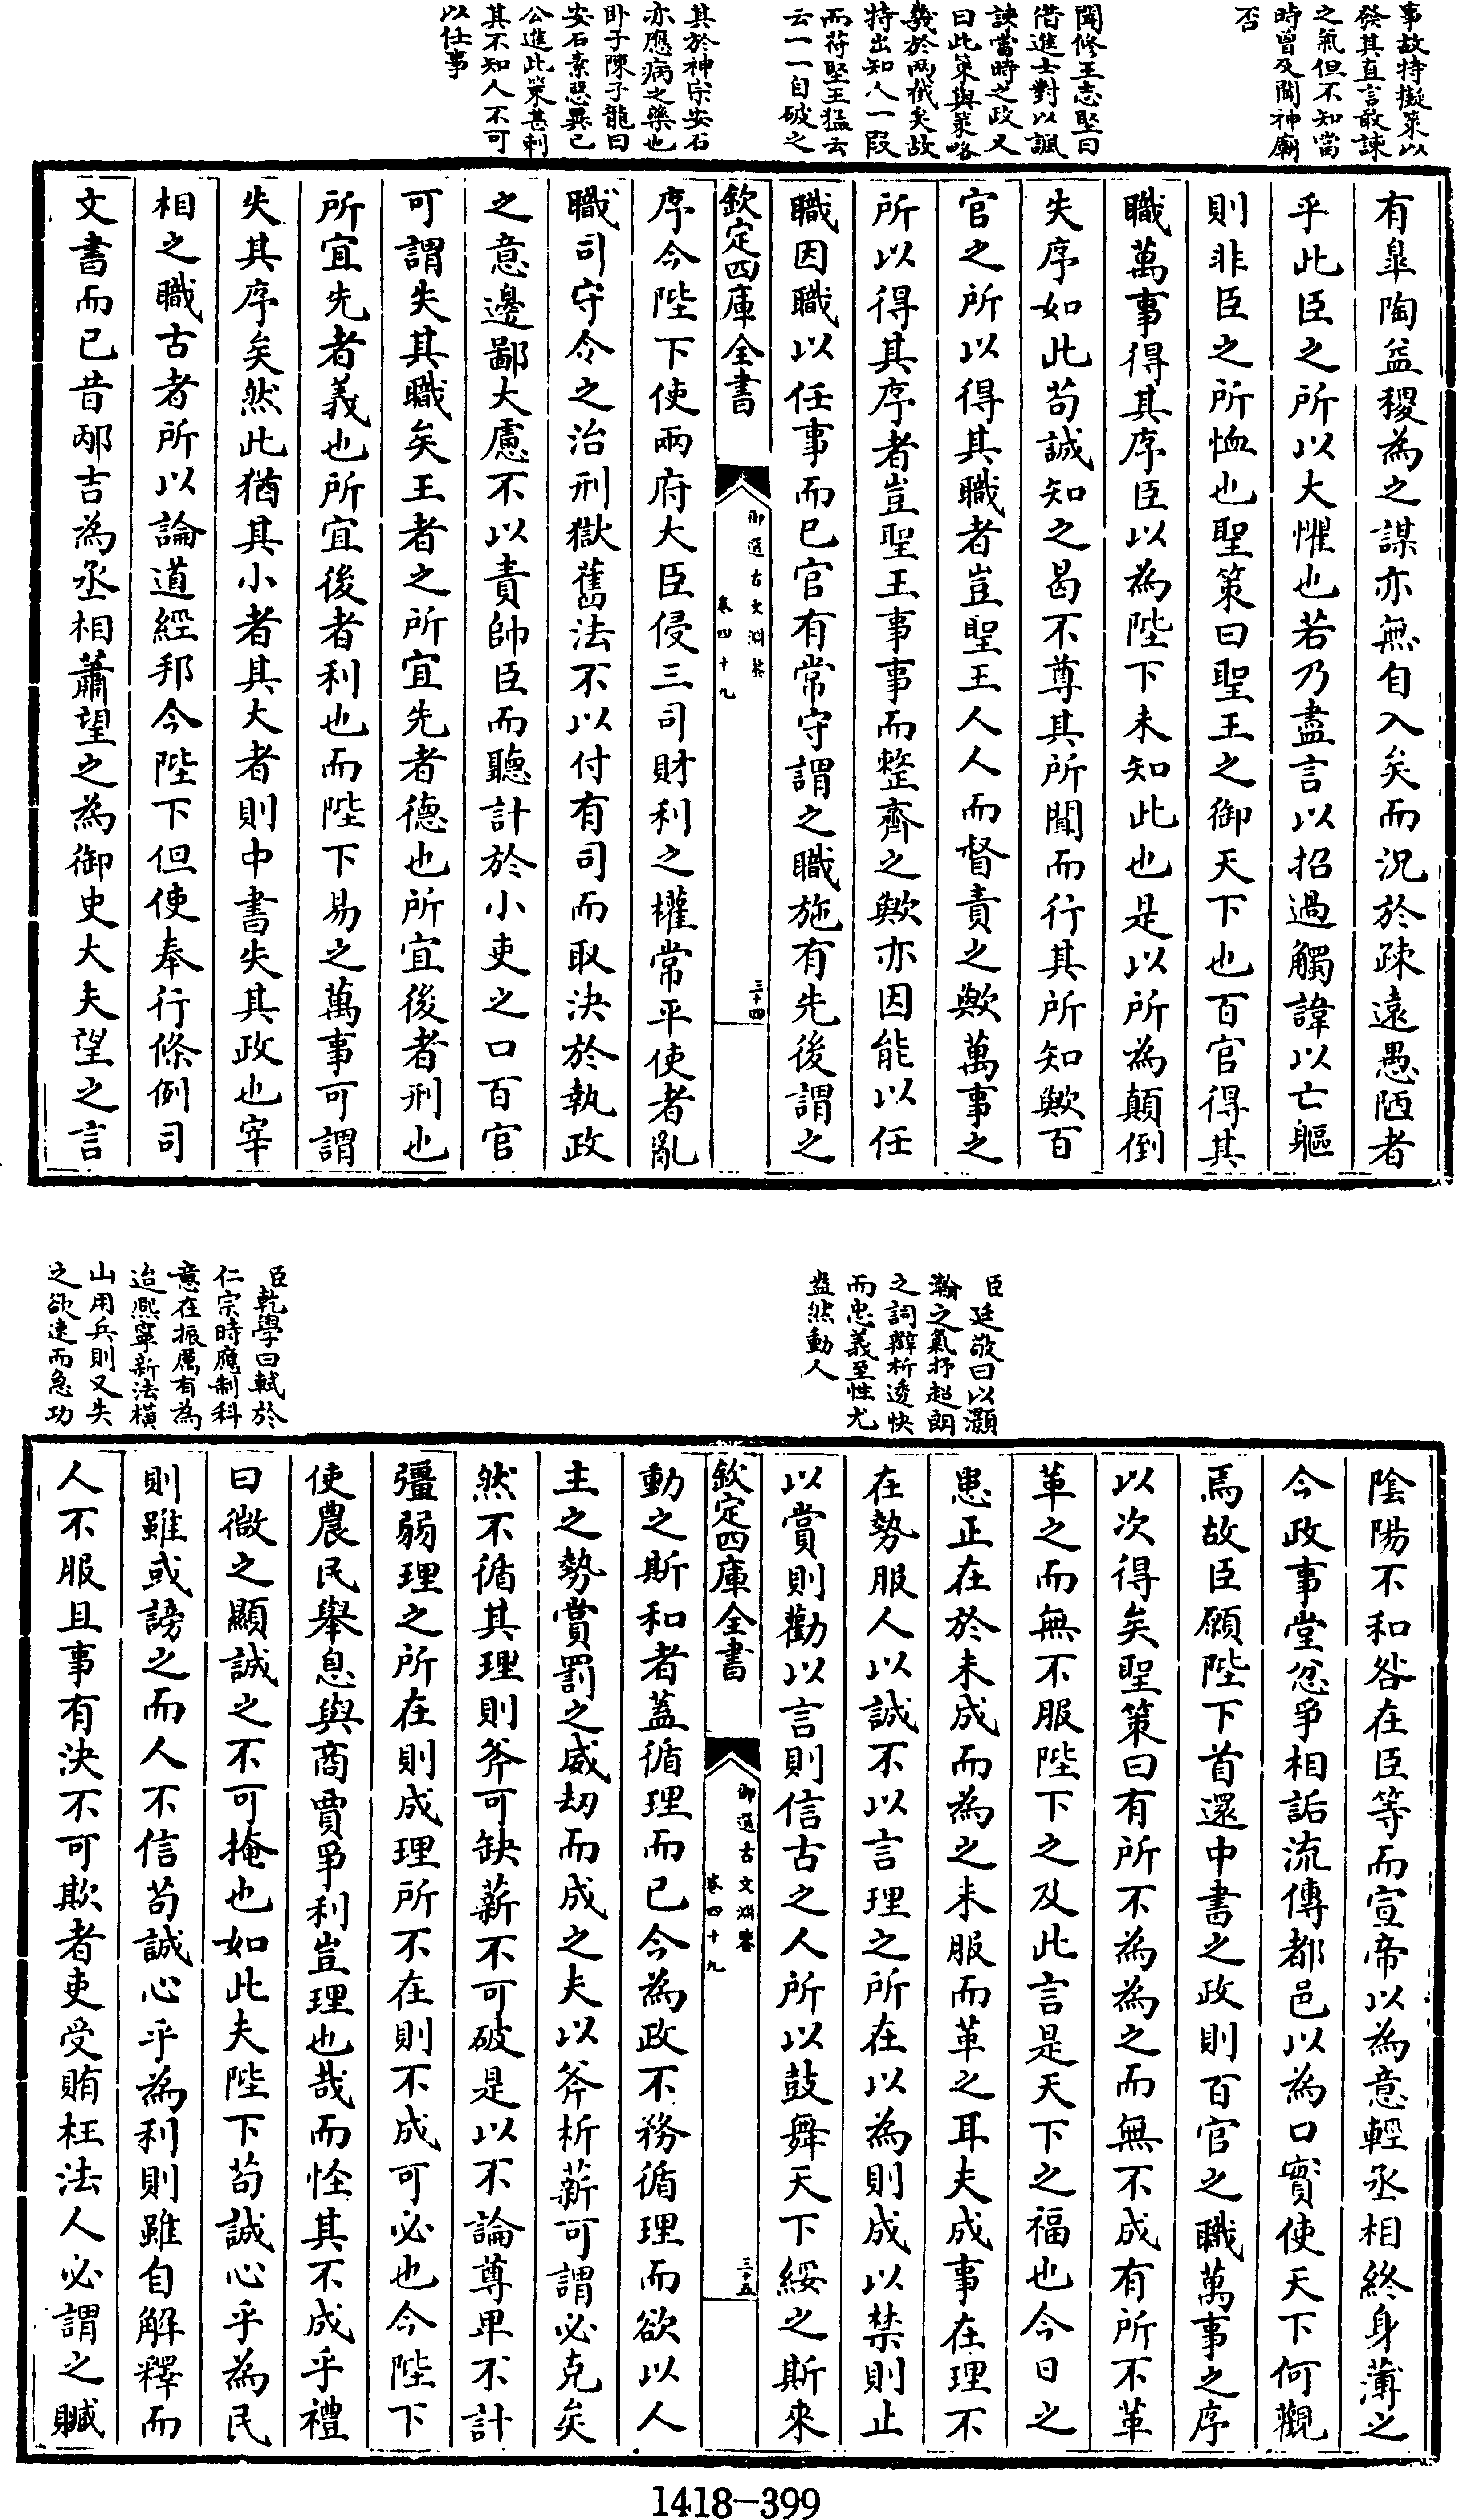 事故特擬策以
發其直言敢諫
之氣但不知當
時曽及聞神廟
否
聞修王志堅曰
借進士對以諷
訣當時之政又
曰此策與策略
幾於兩截矣故
特出知人一段
而苻堅王猛云
云一一自破之
其於神宗安石
亦應病之藥也
卧子陳子龍曰
安石素惡異己
公進此策甚刺
其不知人不可
以任事
有臯陶益稷為之謀亦無自入矣而況於疎遠愚陋者
乎此臣之所以大懼也若乃盡言以招過觸諱以亡軀
則非臣之所恤也聖策曰聖王之御天下也百官得其
職萬事得其序臣以為陛下未知此也是以所為顛倒
失序如此苟誠知之曷不尊其所聞而行其所知歟百
官之所以得其職者豈聖王人人而督責之歟萬事之
所以得其序者豈聖王事事而整齊之歟亦因能以任
職因職以任事而已官有常守謂之職施有先後謂之
欽定四庫全書
御選古文淵鑒
卷四十九
三十四
序今陛下使兩府大臣侵三司財利之權常平使者亂
職司守令之治刑獄舊法不以付有司而取決於執政
之意邊鄙大慮不以責帥臣而聽計於小吏之口百官
可謂失其職矣王者之所宜先者德也所宜後者刑也
所宜先者義也所宜後者利也而陛下易之萬事可謂
失其序矣然此猶其小者其大者則中書失其政也宰
相之職古者所以論道經邦今陛下但使奉行條例司
文書而已昔邴吉為丞相蕭望之為御史大夫望之言
臣廷敬曰以灝
瀚之氣抒超朗
之詞辯析透快
而忠義至性尤
盎然動人
臣乾學曰軾於
仁宗時應制科
意在振厲有為
迨熙寧新法橫
山用兵則又失
之欲速而急功
陰陽不和咎在臣等而宣帝以為意輕丞相終身薄之
今政事堂忿爭相詬流傳都邑以為口實使天下何觀
焉故臣願陛下首還中書之政則百官之職萬事之序
以次得矣聖策曰有所不為為之而無不成有所不革
革之而無不服陛下之及此言是天下之福也今日之
患正在於未成而為之未服而革之耳夫成事在理不
在勢服人以誠不以言理之所在以為則成以禁則止
以賞則勸以言則信古之人所以鼓舞天下綏之斯來
欽定四庫全書
御選古文淵鑒
卷四十九
三十五
動之斯和者蓋循理而已今為政不務循理而欲以人
主之勢賞罰之威刼而成之夫以斧析薪可謂必克矣
然不循其理則斧可缺薪不可破是以不論尊卑不計
彊弱理之所在則成理所不在則不成可必也今陛下
使農民舉息與商賈爭利豈理也哉而怪其不成乎禮
曰微之顯誠之不可掩也如此夫陛下苟誠心乎為民
則雖或謗之而人不信苟誠心乎為利則雖自解釋而
人不服且事有決不可欺者吏受賄枉法人必謂之贓
1418-399